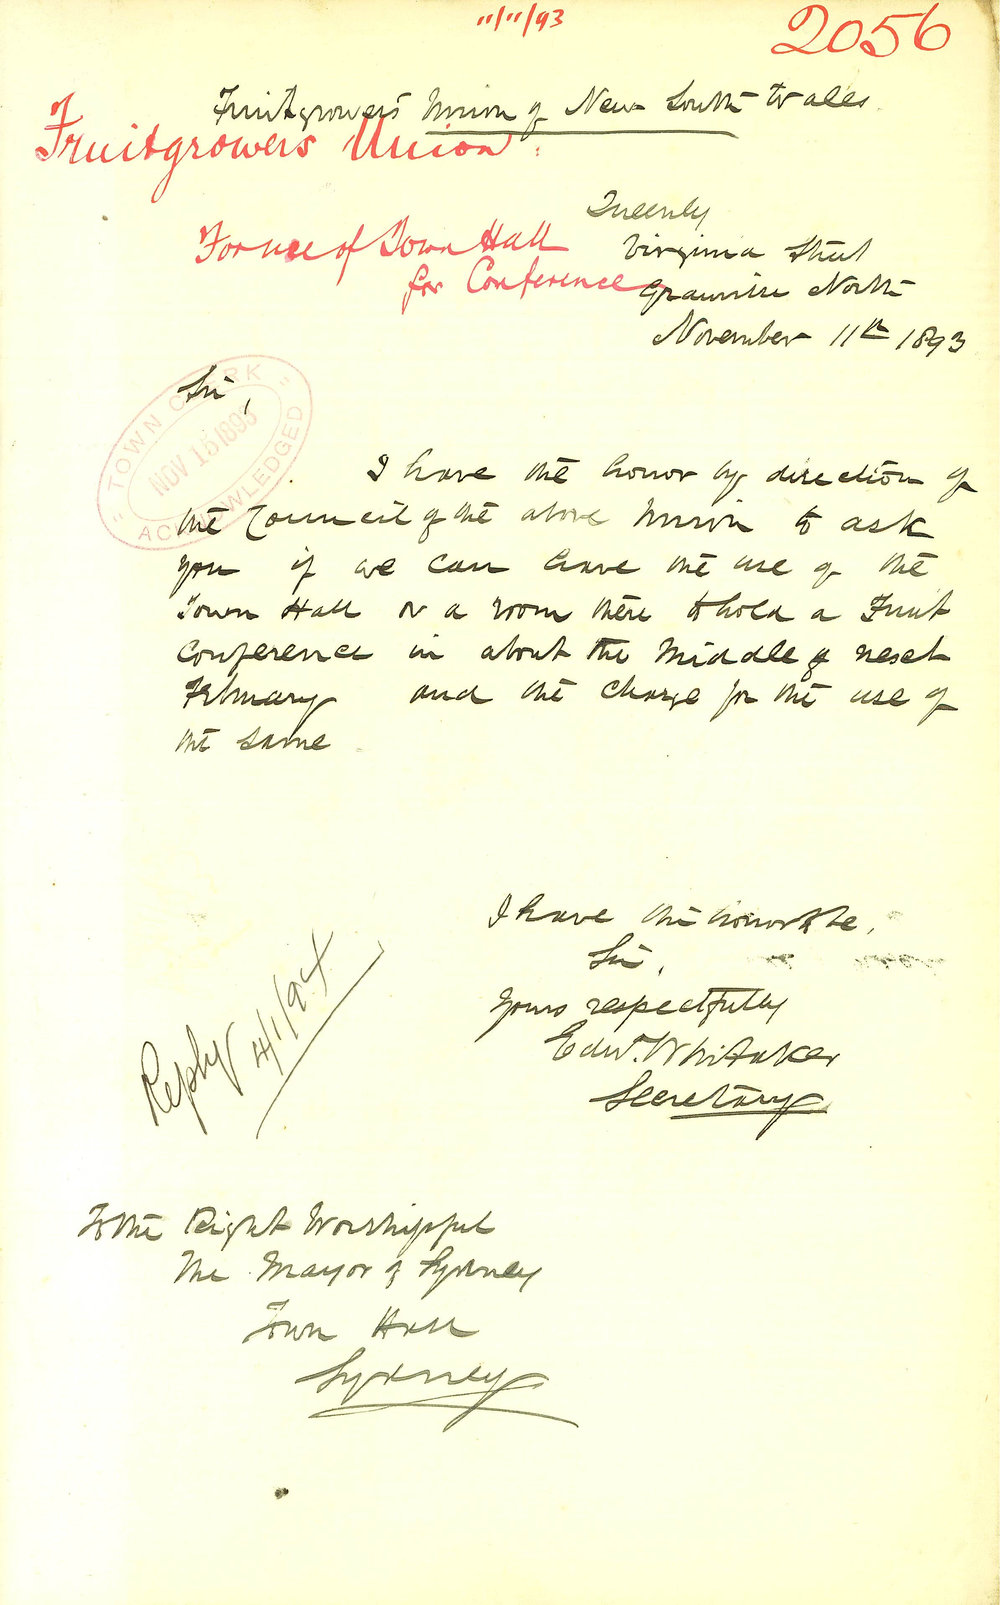 11/11/93
2056
Fruitgrowers Union of New South Wales
Fruitgrowers Union
For use of Town Hall
for Conference
Virginia Street
Granville North
November 11th 1893
TOWN CLERK
NOV 15 1893
ACKNOWLEDGED
Sir,
I have the honor by direction of
the Council of the above Union to ask
you if we can have the use of the
Town Hall or a room there to hold a Fruit
Conference in about the Middle of next
February and the charge for the use of
the same
I have the honor to be,
Sir,
Yours respectfully
Edw. Whitaker
Secretary
Reply 4/1/94
To the Right Worshipful
The Mayor of Sydney
Town Hall
Sydney